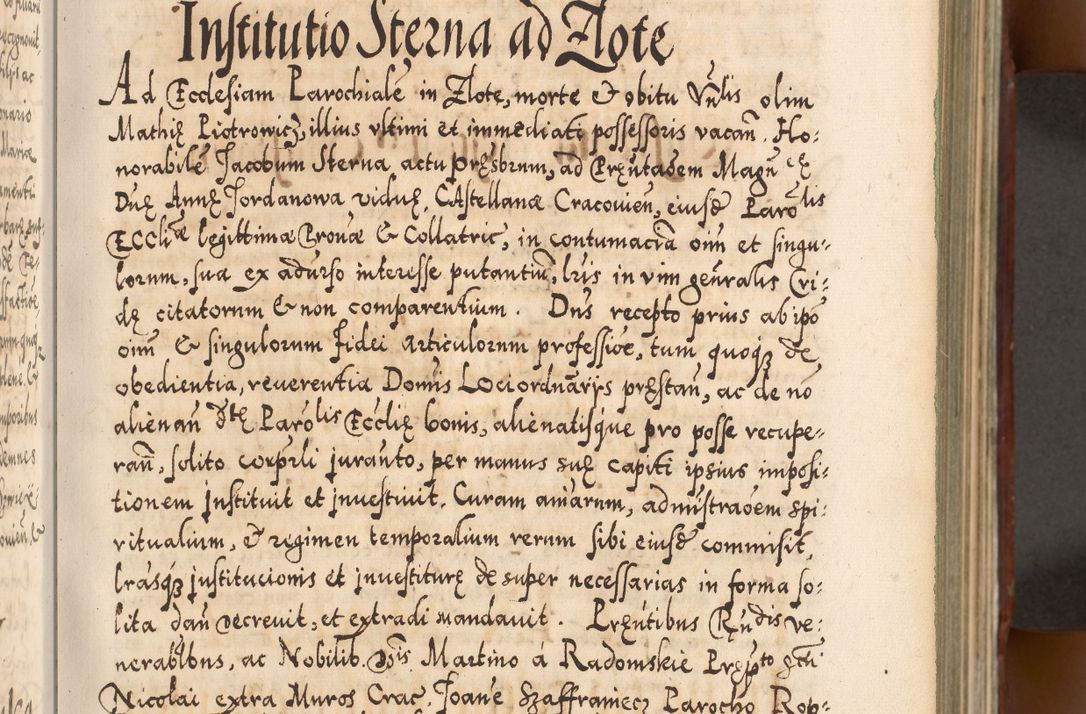 Institutio Sterna ad Zlote
Ad Ecclesiam Parochialē in Zlote, morte & obitu Vn̄lis olim
Mathię Piotrowicz, illius vltimi et immediati possessoris vacan̄. Ho:
norabilē Jacobum Sterna actu pręsbrum, ad Pręntaōem Magn̄cę
Dnę Annę Jordanowa viduę, CAstellanæ Cracouien̄, eiusd Parōlis
ECClię legittimæ Pronæ & Collatric̄, in contumaciā oim̄ et singu-
lorum, sua ex aduŕso interesse putantiū, lris in vim gen̄ralis Cri:
dę citatorum & non comparentium. Dn̄s recepto prius ab ip̄o
oim̄ & singulorum Fidei articulorum professioē, tum quoqȝ de
obedientia, reuerentia Dom̄is Lociordn̄arijs pręstan̄, ac de nō
alienan̄ dtę Parōlis Ecclię bonis, alienatisque pro posse recupe-
ran̄, solito corp̄rli juram̄to, per manus suę capiti ipsius imposi:
tionem jnstituit et jnuestiuit. Curam aīarum, admistraōem spi:
ritualium, & regimen temporalium rerum sibi eiusd commisit,
lrasqȝ jnstitucionis et jnuestiturę desuper necessarias in forma so:
lita dan̄ decreuit, et extradi mandauit. Pręntibus Rn̄dis ve:
nerablbus, ac Nobilib. Dn̄is Martino á Radomskie Pręp̄to
Nicolai extra Muros Crac̄, Joane Szaffraniecz Parocho Rop-